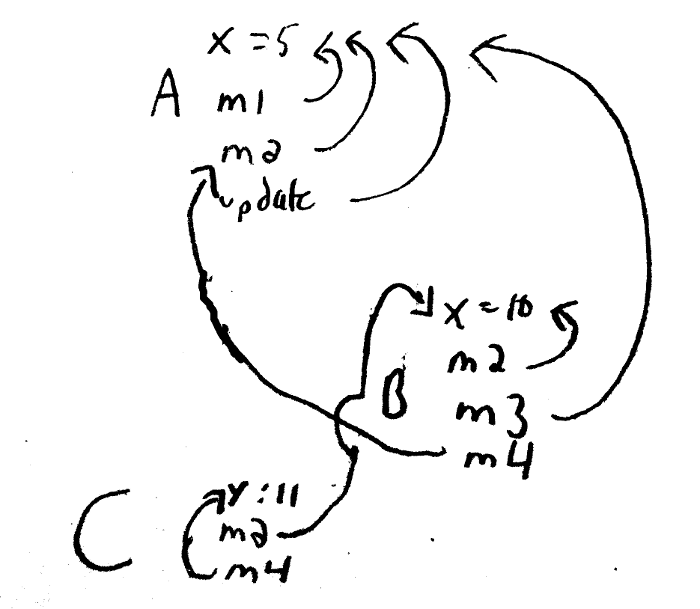 x = 5
A m1
m2
update
x = 10
m2
B m3
m4
y : 11
C m2
m4